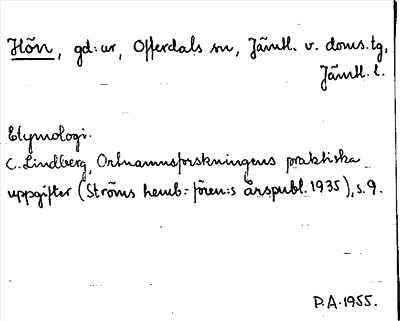 Hõn, gd:ar, Offerdals sn, Jämtl. v. doms.tg,
Jämtl. l.
Etymologi.
C. Lindberg, Ortnamnsforskningens praktiska
uppgifter (Ströms hemb.-fören:s årspubl. 1935), s. 9.
P.A. 1955.